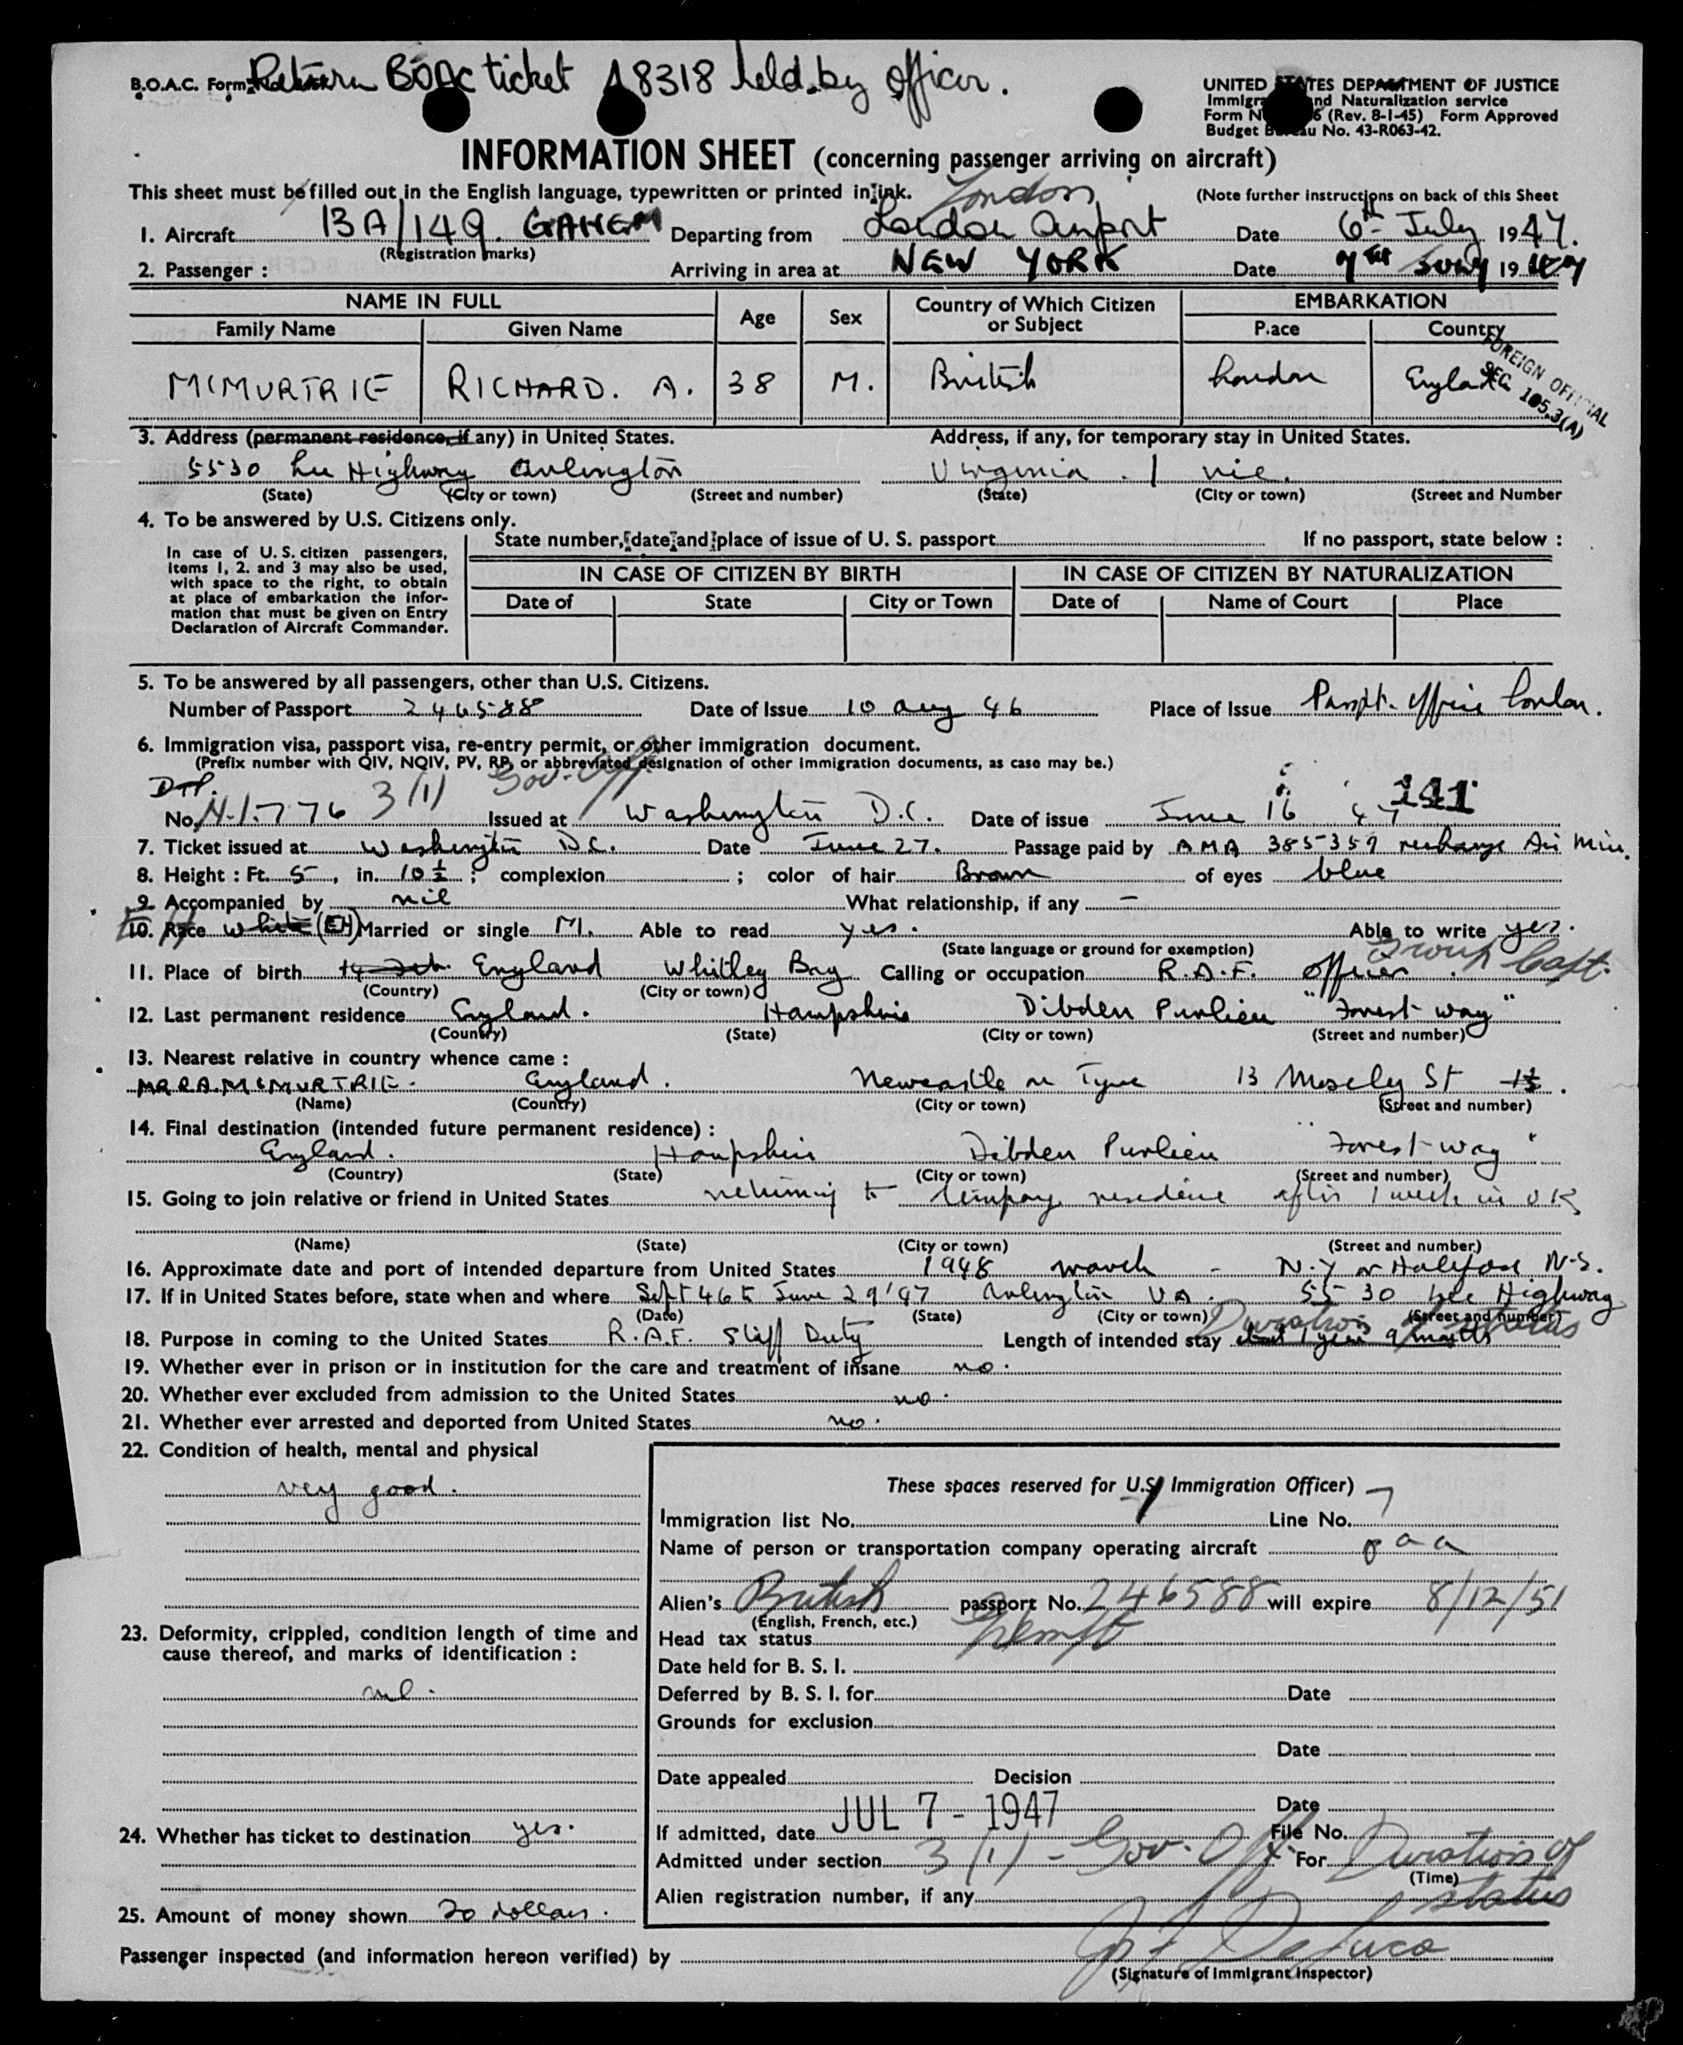 B.O.A.C. Form Return BOAC ticket A8318 held by officer.
UNITED STATES DEPARTMENT OF JUSTICE
Immigration and Naturalization service
Form N 6 (Rev. 8-1-45) Form Approved
Budget Bureau No. 43-R063-42.
INFORMATION SHEET (concerning passenger arriving on aircraft)
This sheet must be filled out in the English language, typewritten or printed in ink.
(Note further instructions on back of this Sheet
London
1. Aircraft BA/149. GAHEM Departing from London Airport Date 6th July 1947.
(Registration marks)
2. Passenger : Arriving in area at NEW YORK Date 7th July 1947
NAME IN FULL Age Sex Country of Which Citizen or Subject EMBARKATION
Family Name Given Name P.ace Country
MCMURTRIE RICHARD. A. 38 M. British London England
FOREIGN OFFICIAL
SEC. 105.3(A)
3. Address (permanent residence, if any) in United States. Address, if any, for temporary stay in United States.
5530 Lee Highway Arlington Virginia.
(State) (City or town) (Street and number) (State) (City or town) (Street and Number
4. To be answered by U.S. Citizens only.
In case of U. S. citizen passengers,
items 1, 2. and 3 may also be used,
with space to the right, to obtain
at place of embarkation the infor-
mation that must be given on Entry
Declaration of Aircraft Commander.
State number, date and place of issue of U. S. passport If no passport, state below :
IN CASE OF CITIZEN BY BIRTH IN CASE OF CITIZEN BY NATURALIZATION
Date of State City or Town Date of Name of Court Place
5. To be answered by all passengers, other than U.S. Citizens.
Number of Passport 246588 Date of Issue 10 Aug 46 Place of Issue Passpt. Office London.
6. Immigration visa, passport visa, re-entry permit, or other immigration document.
(Prefix number with QIV, NQIV, PV, RP, or abbreviated designation of other immigration documents, as case may be.)
Gov. Off.
141
No. N.1.776 3(1) Issued at Washington D.C. Date of issue June 16 47
7. Ticket issued at Washington D.C. Date June 27. Passage paid by AMA 385359 recharge Air Min.
8. Height : Ft. 5, in. 10½ ; complexion ; color of hair Brown of eyes blue
9. Accompanied by nil What relationship, if any -
10. Race White (EH) Married or single M. Able to read yes. Able to write yes.
(State language or ground for exemption)
Group Capt.
11. Place of birth England Whitley Bay Calling or occupation R.A.F. Officer.
(Country) (City or town)
12. Last permanent residence England. Hampshire Dibden Purlieu "Forest-way"
(Country) (State) (City or town) (Street and number)
13. Nearest relative in country whence came :
MR R.A. McMURTRIE. England. Newcastle on Tyne 13 Moseley St
(Name) (Country) (City or town) (Street and number)
14. Final destination (intended future permanent residence) :
England. Hampshire Dibden Purlieu "Forest-way"
(Country) (State) (City or town) (Street and number)
15. Going to join relative or friend in United States returning to tempory residence after 1 week in UK
(Name) (State) (City or town) (Street and number)
16. Approximate date and port of intended departure from United States 1948 march - N.Y or Halifax N-S.
17. If in United States before, state when and where Sept 46 to June 29 '47 Arlington VA. 5530 Lee Highway
(Date) (State) (City or town) (Street and number)
Duration of status
18. Purpose in coming to the United States R.A.F. Staff Duty Length of intended stay about 1 year 9 months
19. Whether ever in prison or in institution for the care and treatment of insane no.
20. Whether ever excluded from admission to the United States no.
21. Whether ever arrested and deported from United States no.
22. Condition of health, mental and physical
very good.
23. Deformity, crippled, condition length of time and
cause thereof, and marks of identification :
nil.
24. Whether has ticket to destination yes.
25. Amount of money shown 20 dollars.
These spaces reserved for U.S. Immigration Officer)
Immigration list No. Line No. 7
Name of person or transportation company operating aircraft
Alien's British passport No. 246588 will expire 8/12/51
(English, French, etc.)
Head tax status Exempt
Date held for B. S. I.
Deferred by B. S. I. for Date
Grounds for exclusion
Date
Date appealed Decision
Date
If admitted, date JUL 7 - 1947 File No.
Admitted under section 3(1) - Gov. Off. For Duration of
(Time)
status
Alien registration number, if any
Passenger inspected (and information hereon verified) by
(Signature of Immigrant Inspector)